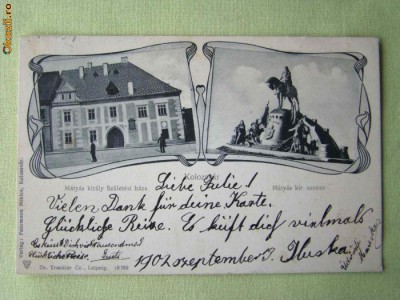 okazii.ro
Kolozsvár
Mátyás király Születési háza.
Mátyás kir. szobor
Liebe Julie!
Vielen Dank für deine Karte.
Glückliche Reise. Es küßt dich vielmals
1902 szeptember 9. Iluska
Dr. Trenkler Co., Leipzig.
Verlag: Fuhrmann Miklós, Kolozsvár.